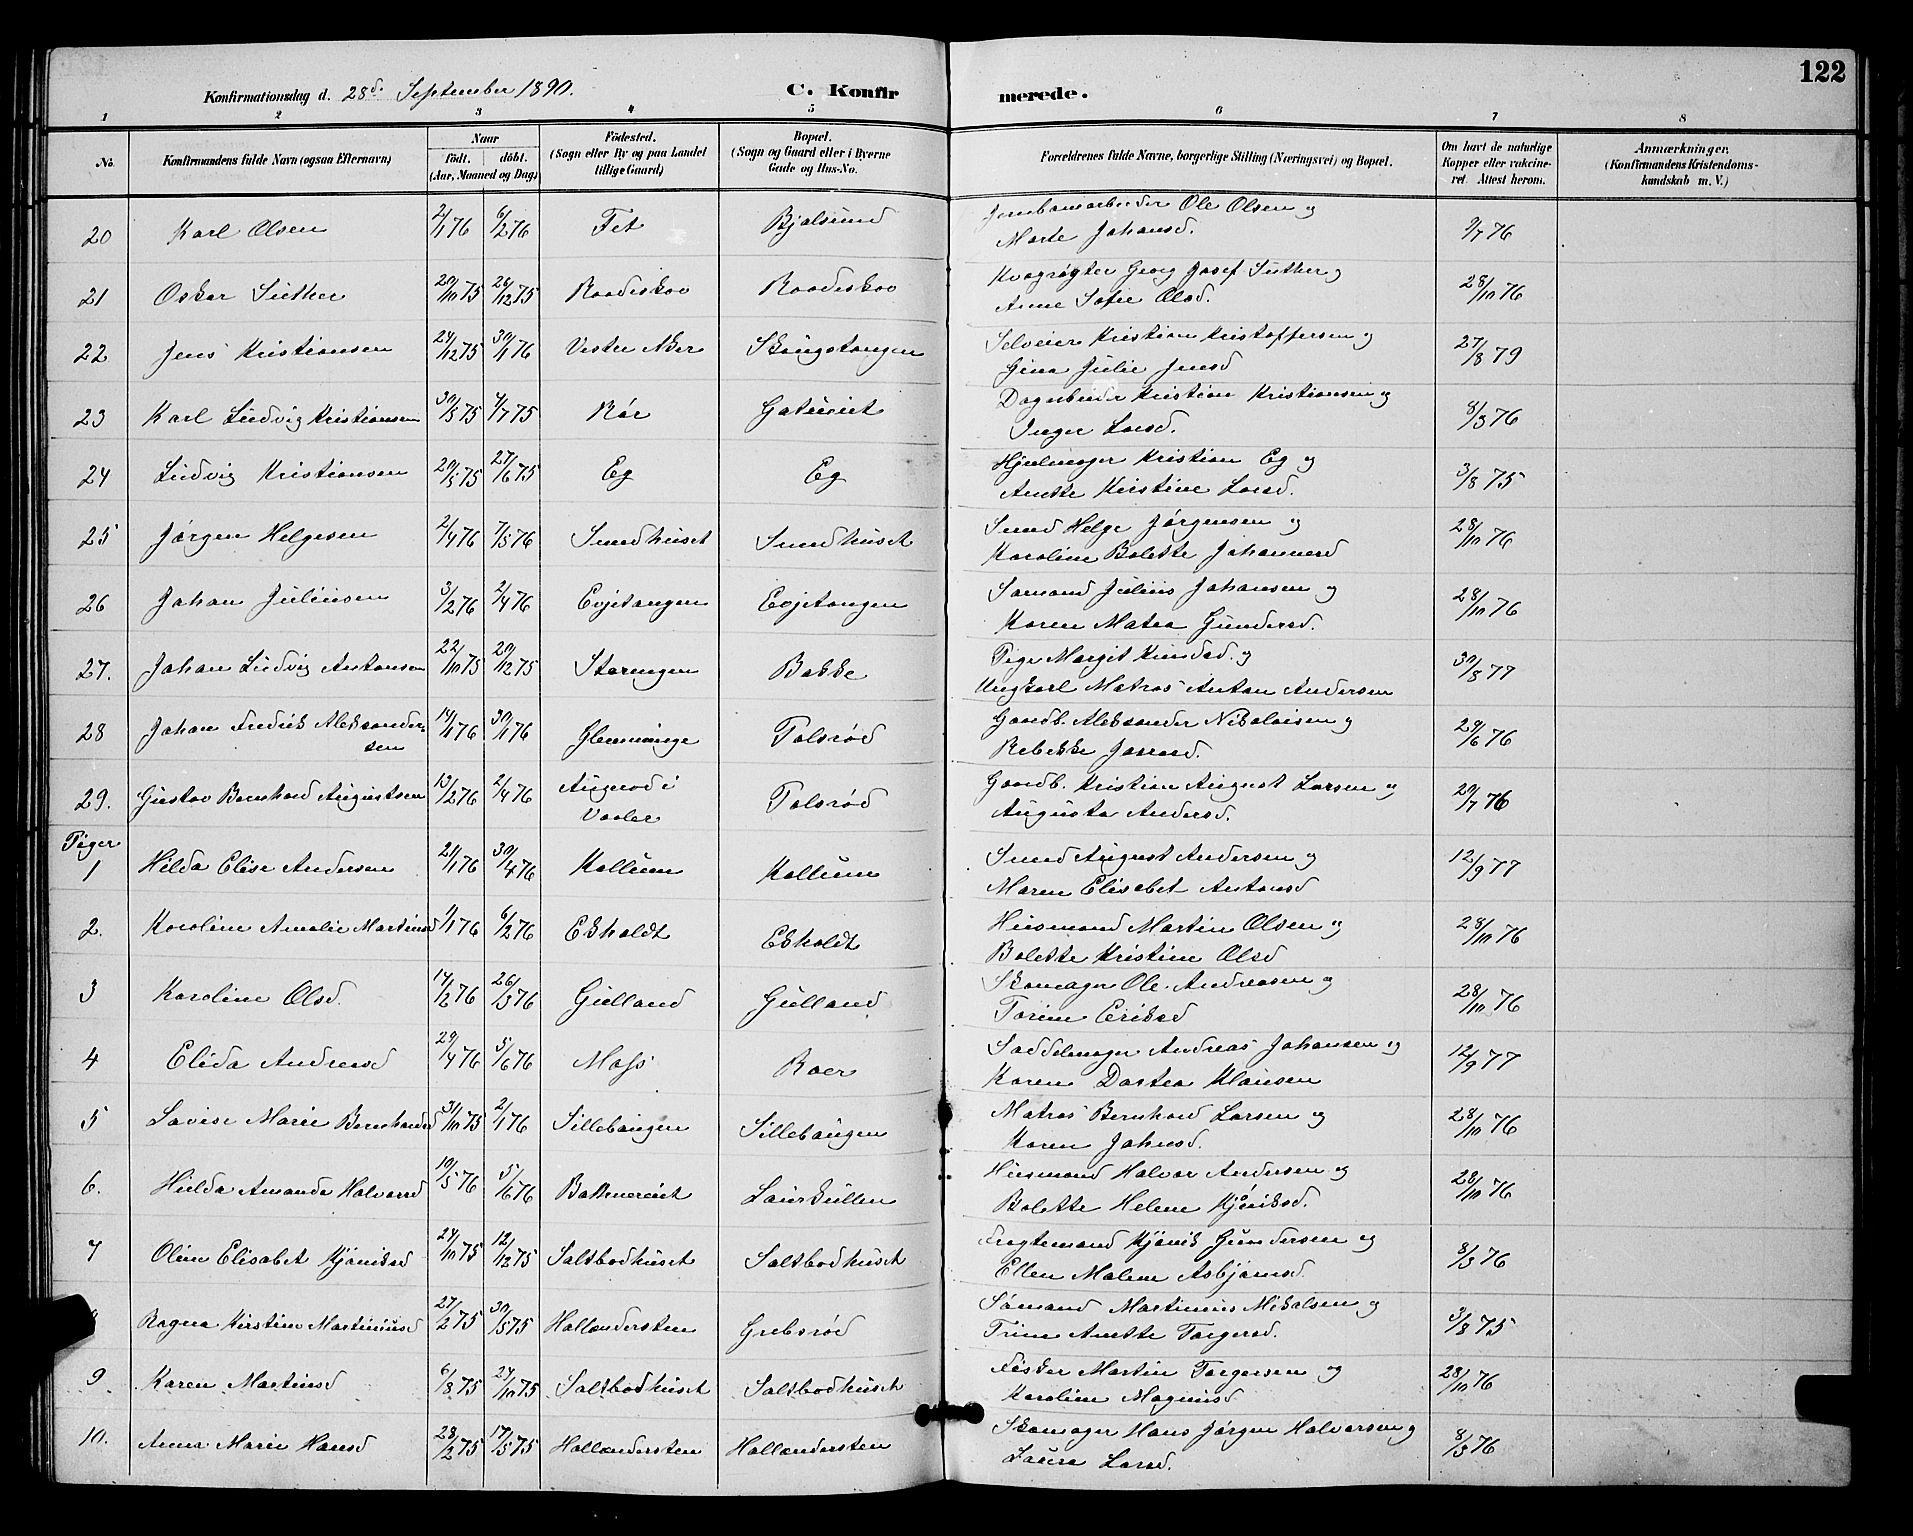 122
Konfirmationsdag d. 28d. September 1890.
C. Konfirmerede.
1 2 3 4 5 6 7 8
No.
Konfirmandens fulde Navn (ogsaa Efternavn)
Naar
födt. döbt.
(Aar, Maaned og Dag)
Födested.
(Sogn eller By og paa Landet
tillige Gaard)
Bopæl.
(Sogn og Gaard eller i Byerne
Gade og Hus-No.
Forældrenes fulde Navne, borgerlige Stilling (Næringsvei) og Bopæl.
Om havt de naturlige
Kopper eller vakcine-
ret. Attest herom.
Anmærkninger.
(Konfirmandens Kristendoms-
kundskab m. V.)
20 Karl Olsen 2/1 76 6/2 76 Fet Bjølsund Jernbanearbeider Ole Olsen og
Marte Johansd. 9/7 76
21 Oskar Suther 20/10 75 26/12 75 Raadeskov Raadeskov Kvægrøgter Georg Josef Suther og
Anne Sofie Olsd. 28/10 76
22 Jens Kristiansen 24/12 75 30/1 76 Vestre Aker Skougstangen Selveier Kristian Kristoffersen og
Gina Julie Jensd 27/8 79
23 Karl Ludvig Kristiansen 30/5 75 4/7 75 Rör Gatuveit Dagarbeider Kristian Kristiansen og
Inger Larsd. 8/3 76
24 Ludvig Kristiansen 20/5 75 27/6 75 Eg Eg Hjulmager Kristian Eg og
Anette Kristine Larsd. 3/8 75
25 Jørgen Helgesen 2/4 76 7/5 76 Smedhuset Smedhuset Smed Helge Jørgensen og
Karoline Bolette Johannesd 28/10 76
26 Johan Juliusen 3/2 76 2/4 76 Evjetangen Evjetangen Sømand Julius Johansen og
Karen Matea Gundersd. 28/10 76
27. Johan Ludvig Antonsen 22/10 75 20/12 75 Støtingen Bakke Pige Margit Knudsd. og
Ungkarl Matros Anton Andersen 30/8 77
28 Johan Fredrik Aleksander-
sen 14/1 76 30/1 76 Glemminge Tolsrød Gaardb. Aleksander Nikolaisen og
Rebekke Jensd. 29/6 76
29. Gustav Bernhard Augustsen 13/2 76 2/4 76 Augerød i
Vaaler Tolsrød Gaardb. Kristian August Larsen og
Augusta Andersd. 20/7 76
Piger
1 Hilda Elise Andersen 21/1 76 30/4 76 Kollum Kollum Smed August Andersen og
Maren Elisabet Antonsd 12/9 77
2. Karoline Amalie Martinsd 1/1 76 6/2 76 Ekholdt Ekholdt Husmand Martin Olsen og
Bolette Kristine Olsd 28/10 76
3 Karoline Olsd. 14/2 76 26/3 76 Gulland Gulland Skomager Ole Andreasen og
Torine Eriksd 28/10 76
4 Elida Andreasd 29/4 76 5/6 76 Moss Roer Saddelmager Andreas Johansen og
Karen Dortea Klausen 12/9 77
5 Lovise Marie Bernhardsd 31/10 75 2/1 76 Sillebaugen Sillebaugen Matros Bernhard Larsen og
Karen Johnsd. 28/10 76
6. Hulda Amanda Halvorsd 10/5 76 5/6 76 Bakkeneveit Laurkullen Husmand Halvor Andersen og
Bolette Helene Kjøniksd. 28/10 76
7 Oline Elisabet Kjøniksd 24/10 75 12/12 75 Saltbodhuset Saltbodhuset Fragtemand Kjønik Gundersen og
Ellen Malene Asbjørnsd. 8/3 76
Ragna Kirstine Martiniusd 27/2 75 30/5 75 Hollændersten Grebsrød Sømand Martinius Mikalsen og
Trine Anette Torgersd. 3/8 75
9 Karen Martinsd 6/8 75 24/10 75 Saltbodhuset Saltbodhuset Fisker Martin Torgersen og
Karoline Magnusd. 28/10 76
10. Anna Marie Hansd 28/2 75 17/5 75 Hollændersten Hollændersten Skomager Hans Jørgen Halvorsen og
Laura Larsd. 8/3 76